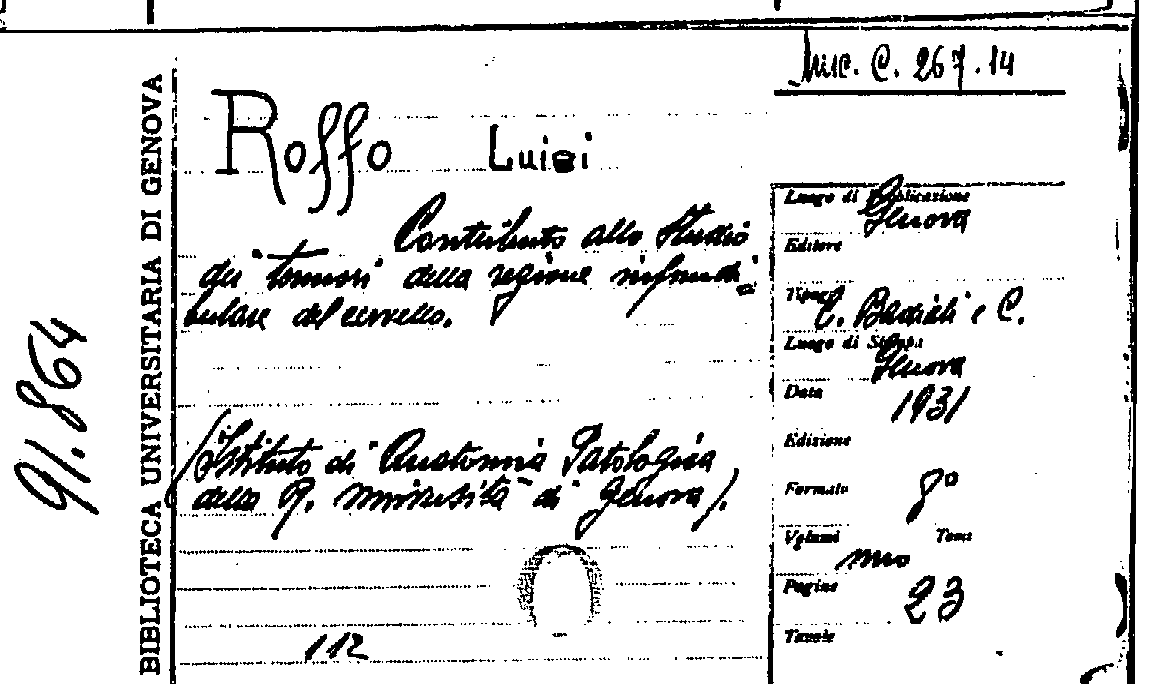 Misc. C. 267.14
BIBLIOTECA UNIVERSITARIA DI GENOVA
91.864
Roffo Luigi
Contributo allo Studio
dei tumori della regione infundi
bulare del cervello.
(Istituto di Anatomia Patologica
della R. Università di Genova).
112
Luogo di Pubblicazione
Genova
Editore
Tipogr
C. Badiali e C.
Luogo di Stampa
Genova
Data 1931
Edizione
Formato 8°
Volumi Tomi
uno
Pagine 23
Tavole